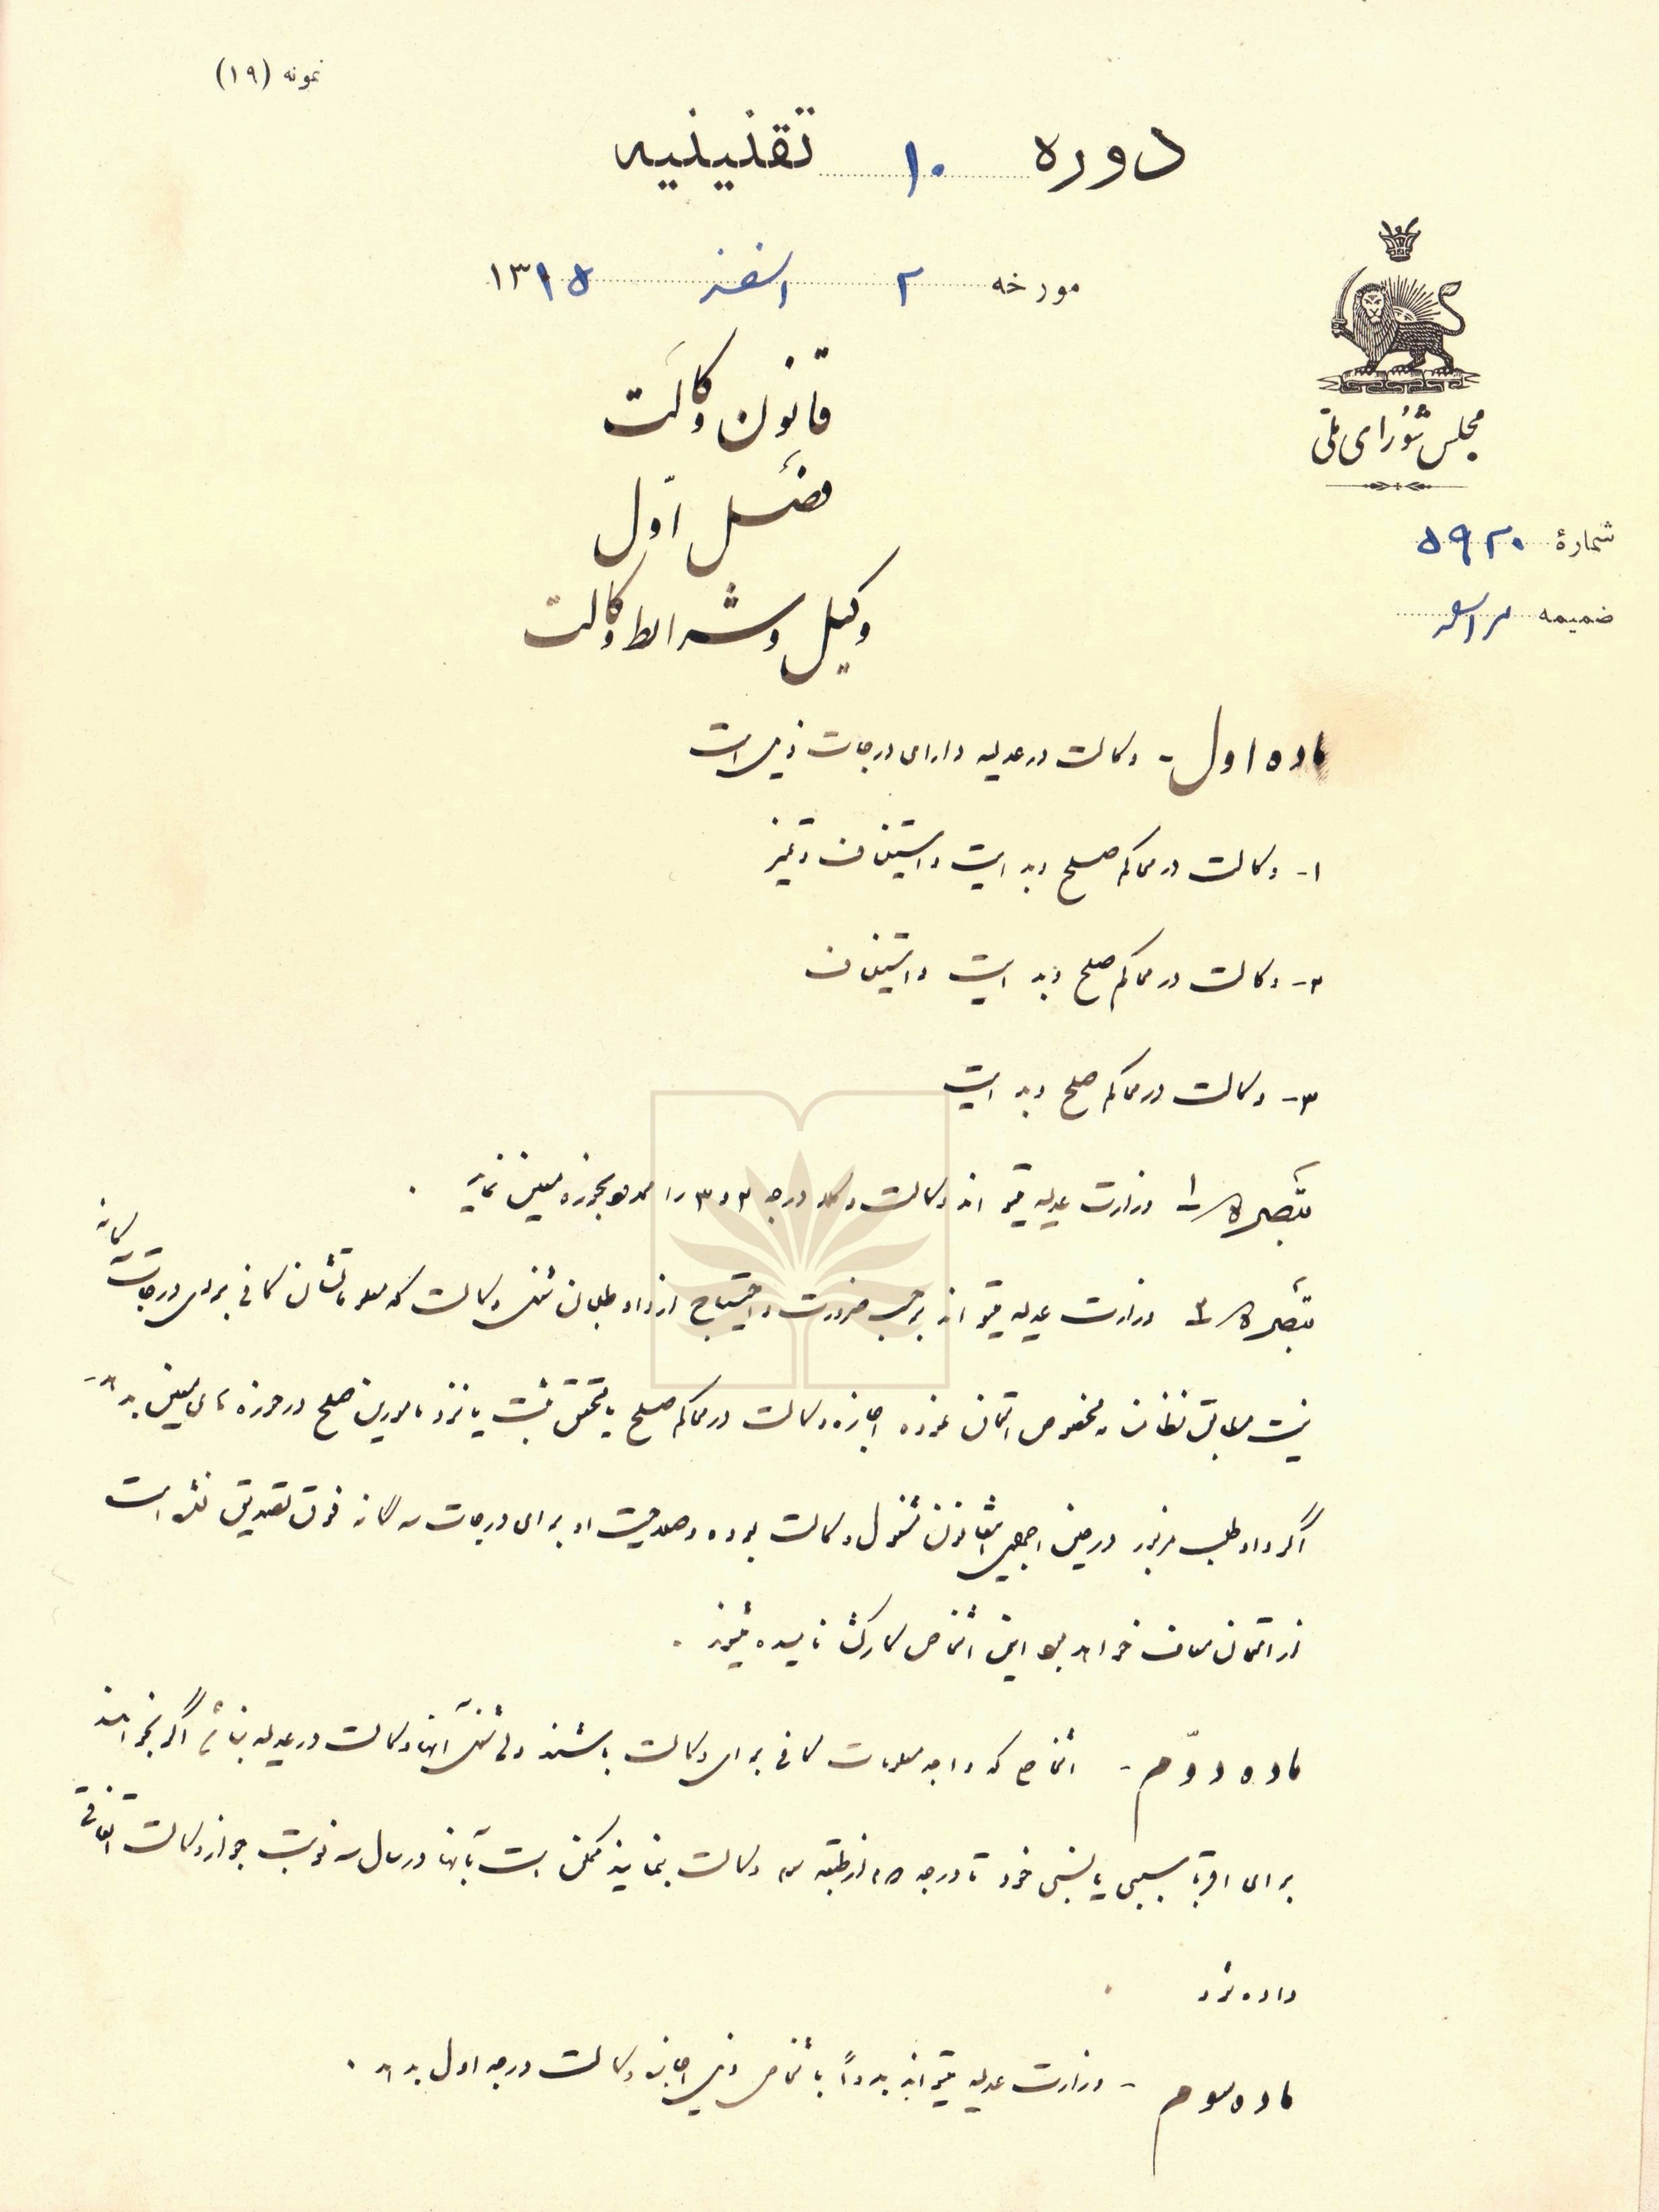 نمونه (۱۹)
دوره ۱۰ تقنینیه
مورخه ۲ اسفند ۱۳۱۵
مجلس شورای ملی
شمارهٔ ۵۹۲۰
ضمیمه
قانون وکالت
فصل اوّل
وکیل و شرایط وکالت
ماده اول - وکالت در عدلیه دارای درجات ذیل است
۱- وکالت در محاکم صلح و بدایت و استیناف و تمیز
۲- وکالت در محاکم صلح و بدایت و استیناف
۳- وکالت در محاکم صلح و بدایت
تبصره ۱ وزارت عدلیه میتواند وکالت وکلاء درجه ۲ و ۳ را محدود بحوزه معین نماید .
تبصره ۲ وزارت عدلیه میتواند بر حسب ضرورت و احتیاج از داوطلبان شغل وکالت که معلوماتشان کافی برای درجات سه‌گانه
نیست مطابق نظامنامه مخصوص امتحان نموده اجازه وکالت در محاکم صلح یا محقق ثبت یا نزد مامورین صلح در حوزه‌های معین بدهد
اگر داوطلب مزبور در حین اجرای این قانون مشغول وکالت بوده و صلاحیت او برای درجات سه گانه فوق تصدیق نشده است
از امتحان معاف خواهد بود این اشخاص کارگشا نامیده میشوند .
ماده دوّم - اشخاصی که واجد معلومات کافی برای وکالت باشند ولی شغل آنها وکالت در عدلیه نباشد اگر بخواهند
برای اقرباء سببی یا نسبی خود تا درجه ۲ از طبقه سوم وکالت بنمایند ممکن است بآنها در سال سه نوبت جواز وکالت اتفاقی
داده شود
ماده سوم - وزارت عدلیه میتواند بدواً باشخاص ذیل اجازه وکالت درجه اول بدهد .